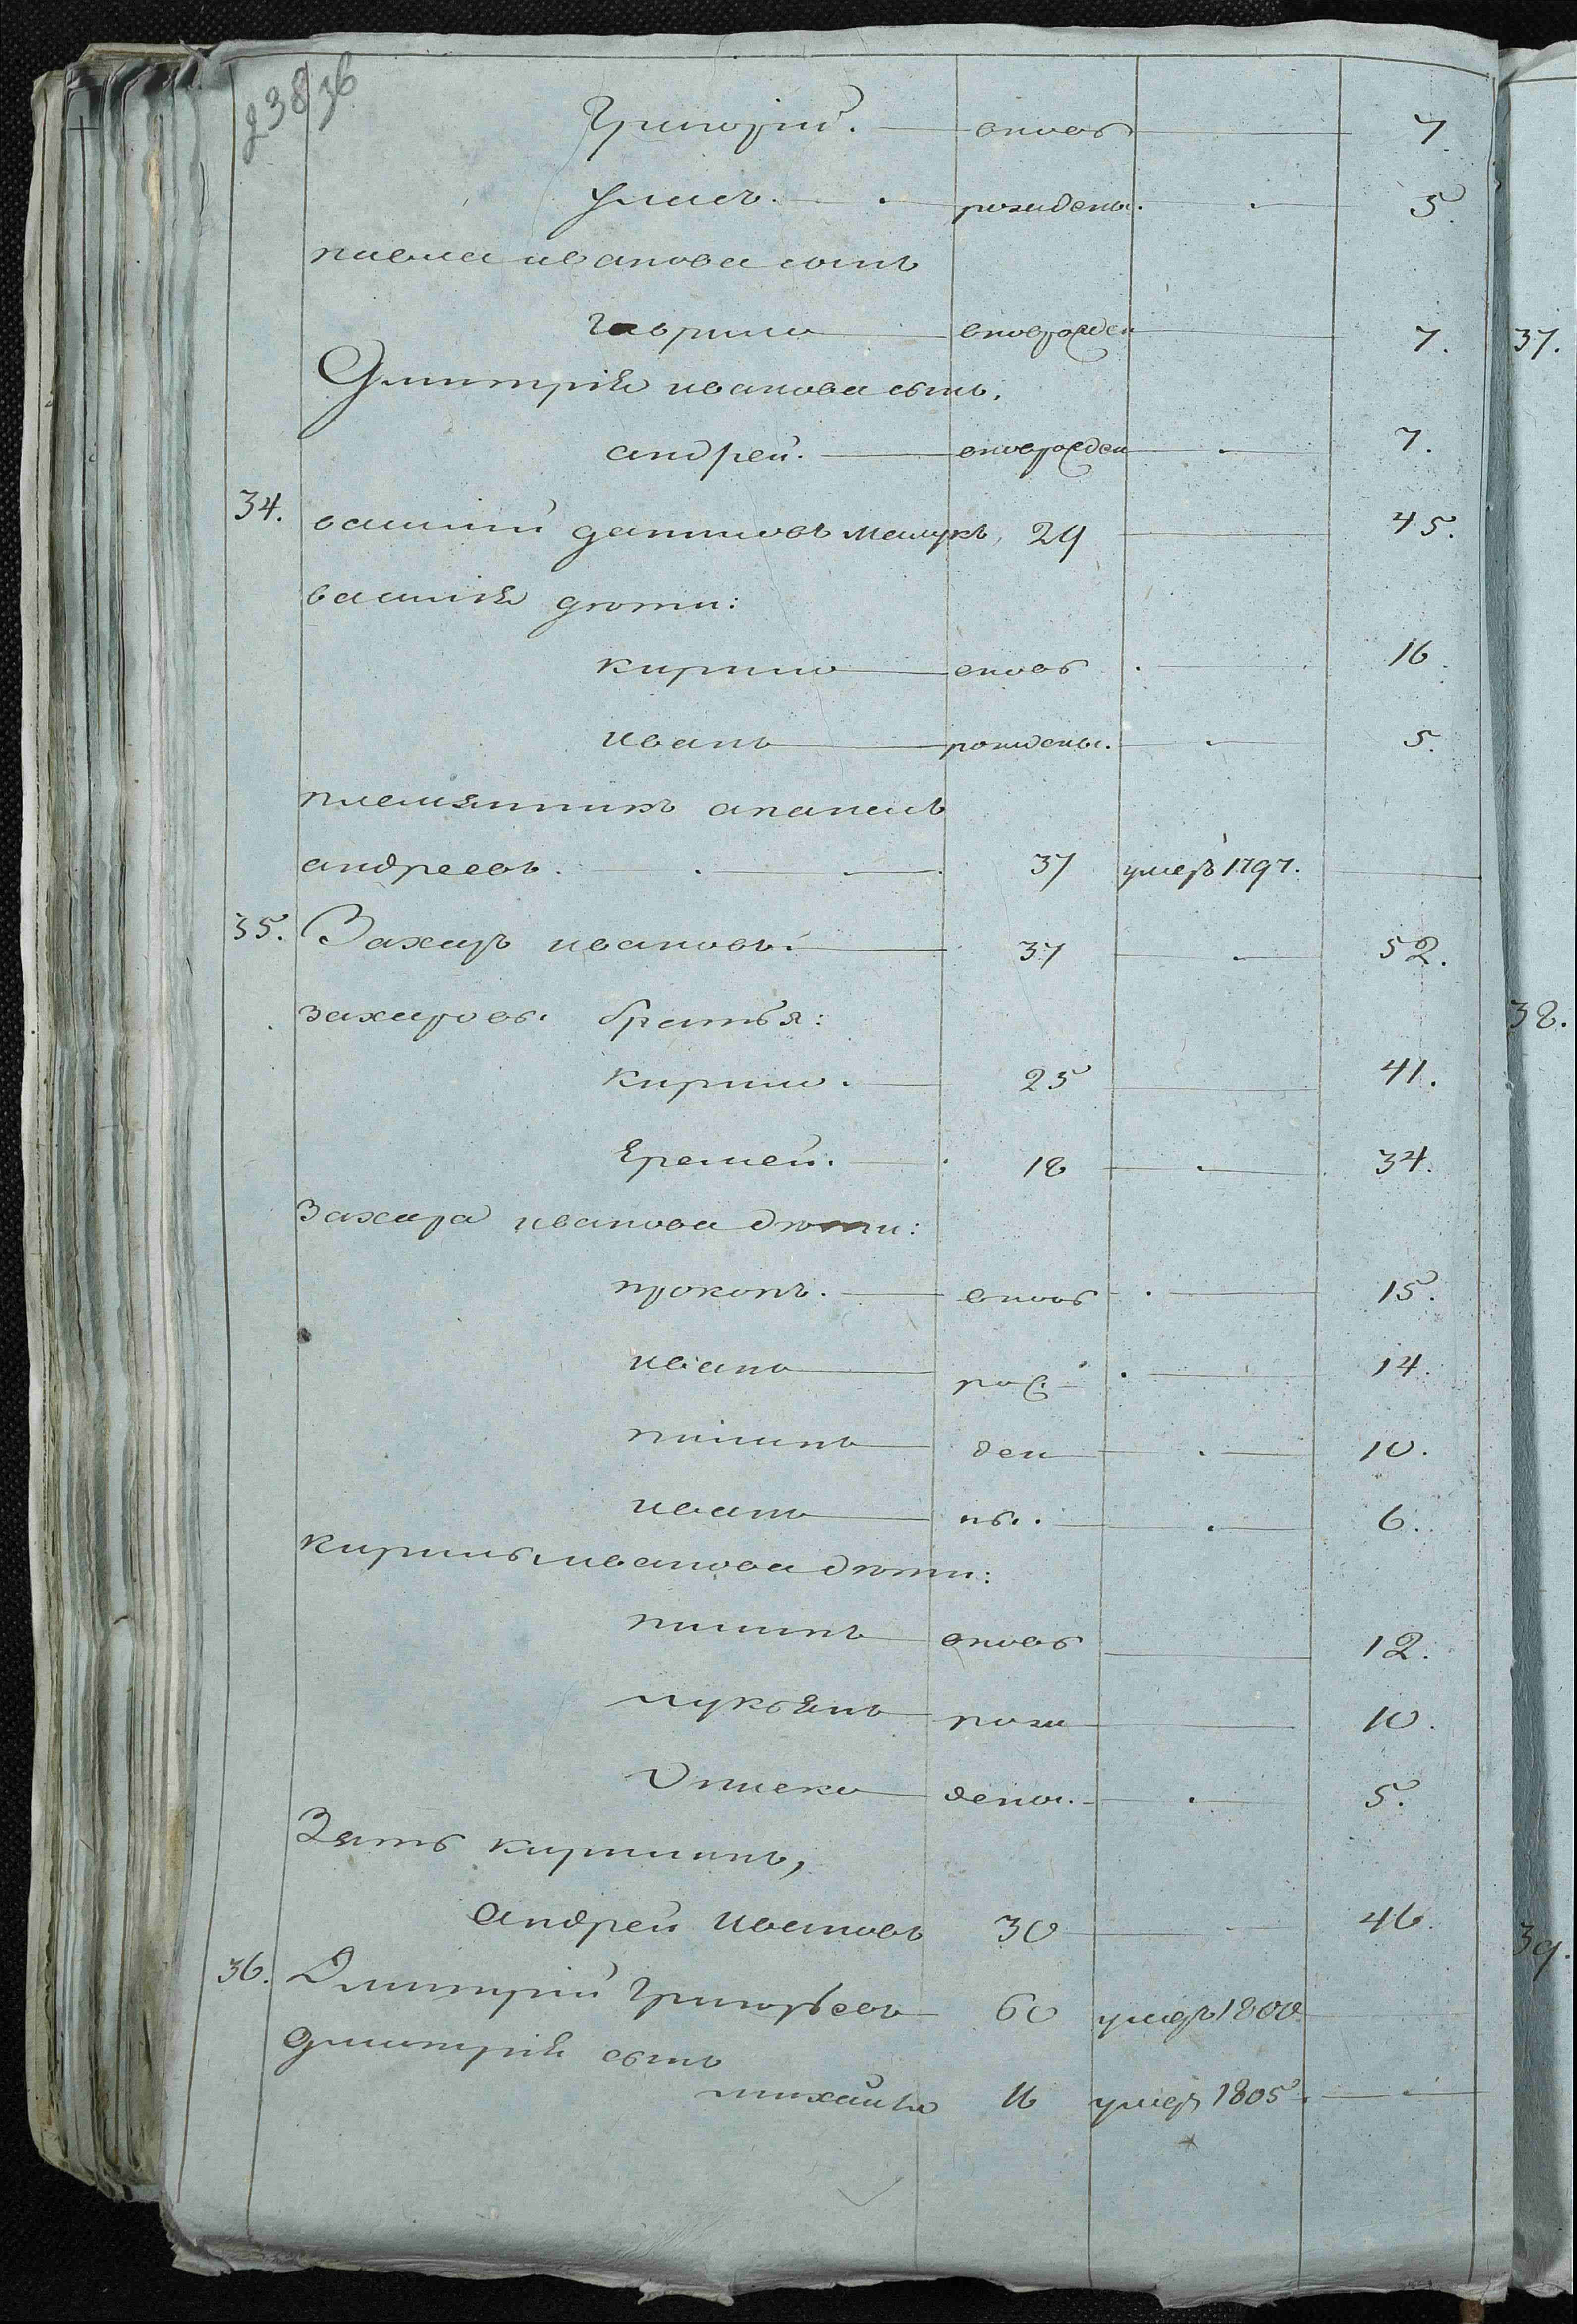 238 36
Григорій. вновь 7
рожденые. 5
павла иванова сынъ
гаврило вноврожден 7. 37.
Дмитрія иванова сынъ,
андрей. вноврожден 7.
34. василій даниловъ 29 45.
василія дѣти:
кирило вновь 16
иванъ рожденые. 5.
племянникъ
андреевъ. 37 умеръ 1797.
35. Захаръ ивановъ. 37 52.
захаровы братья: 38.
кирило. 25 41.
Еремей. 18 34.
Захара иванова дѣти:
прокопъ. вновь 15.
иванъ рож 14.
пилипъ ден 10.
иванъ ны. 6.
кирилы иванова дѣти:
пилипъ вновь 12.
лукьянъ рож 10.
дены. 5.
Зять кириловъ,
Андрей Ивановъ 30 46. 39.
36. Дмитрій Григорьевъ 60 умеръ 1800
Дмитрія сынъ
михайло 16 умеръ 1805.